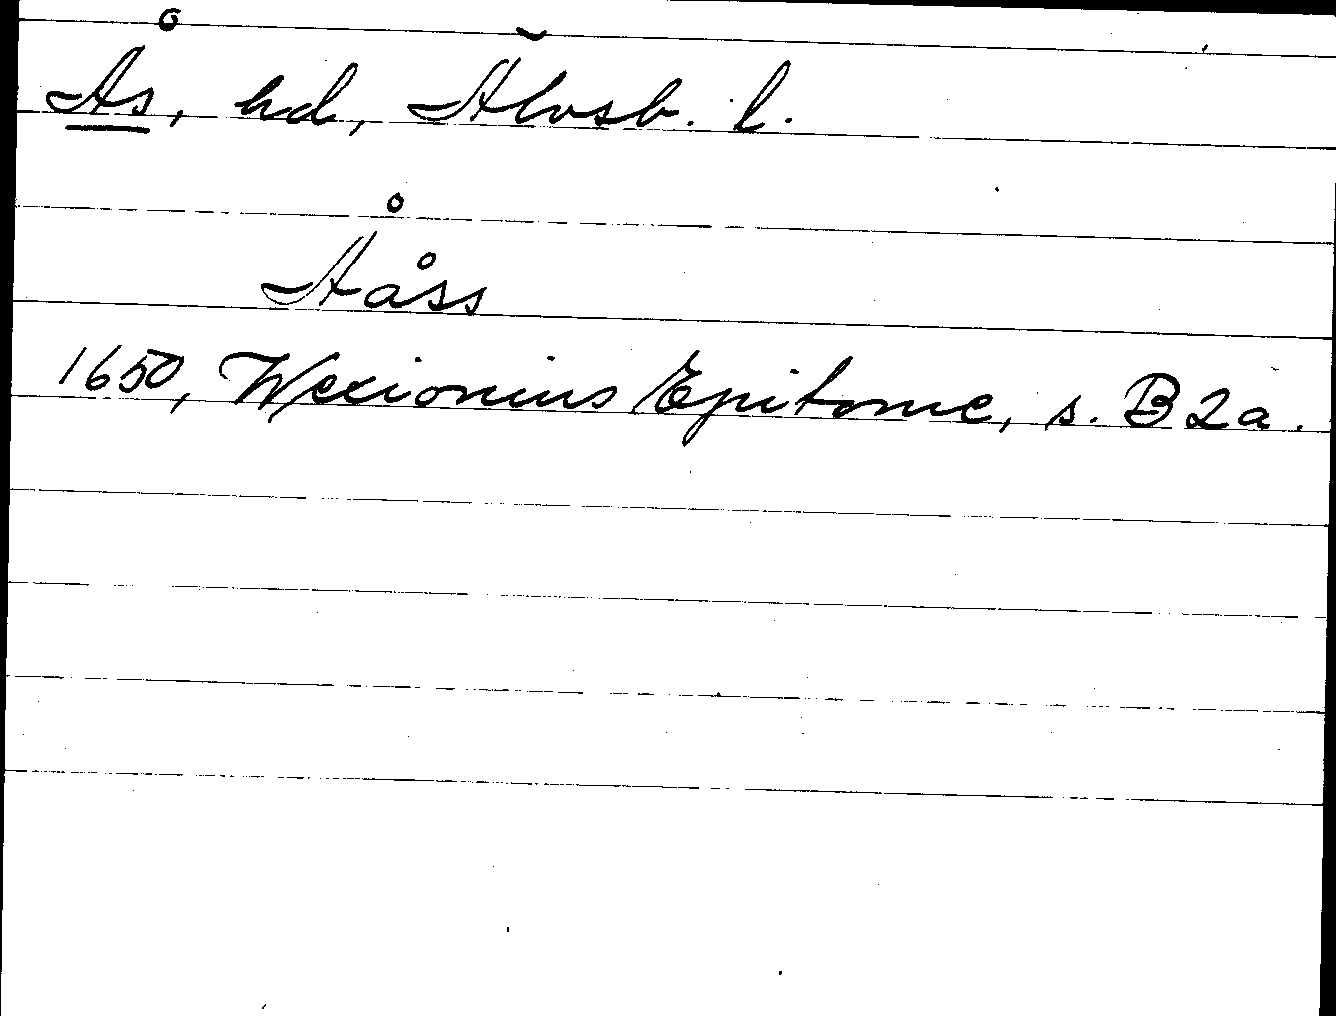 Ås, hd, Älvsb. l.
Ååss
1650, Wexionius Epitome, s. B2a.